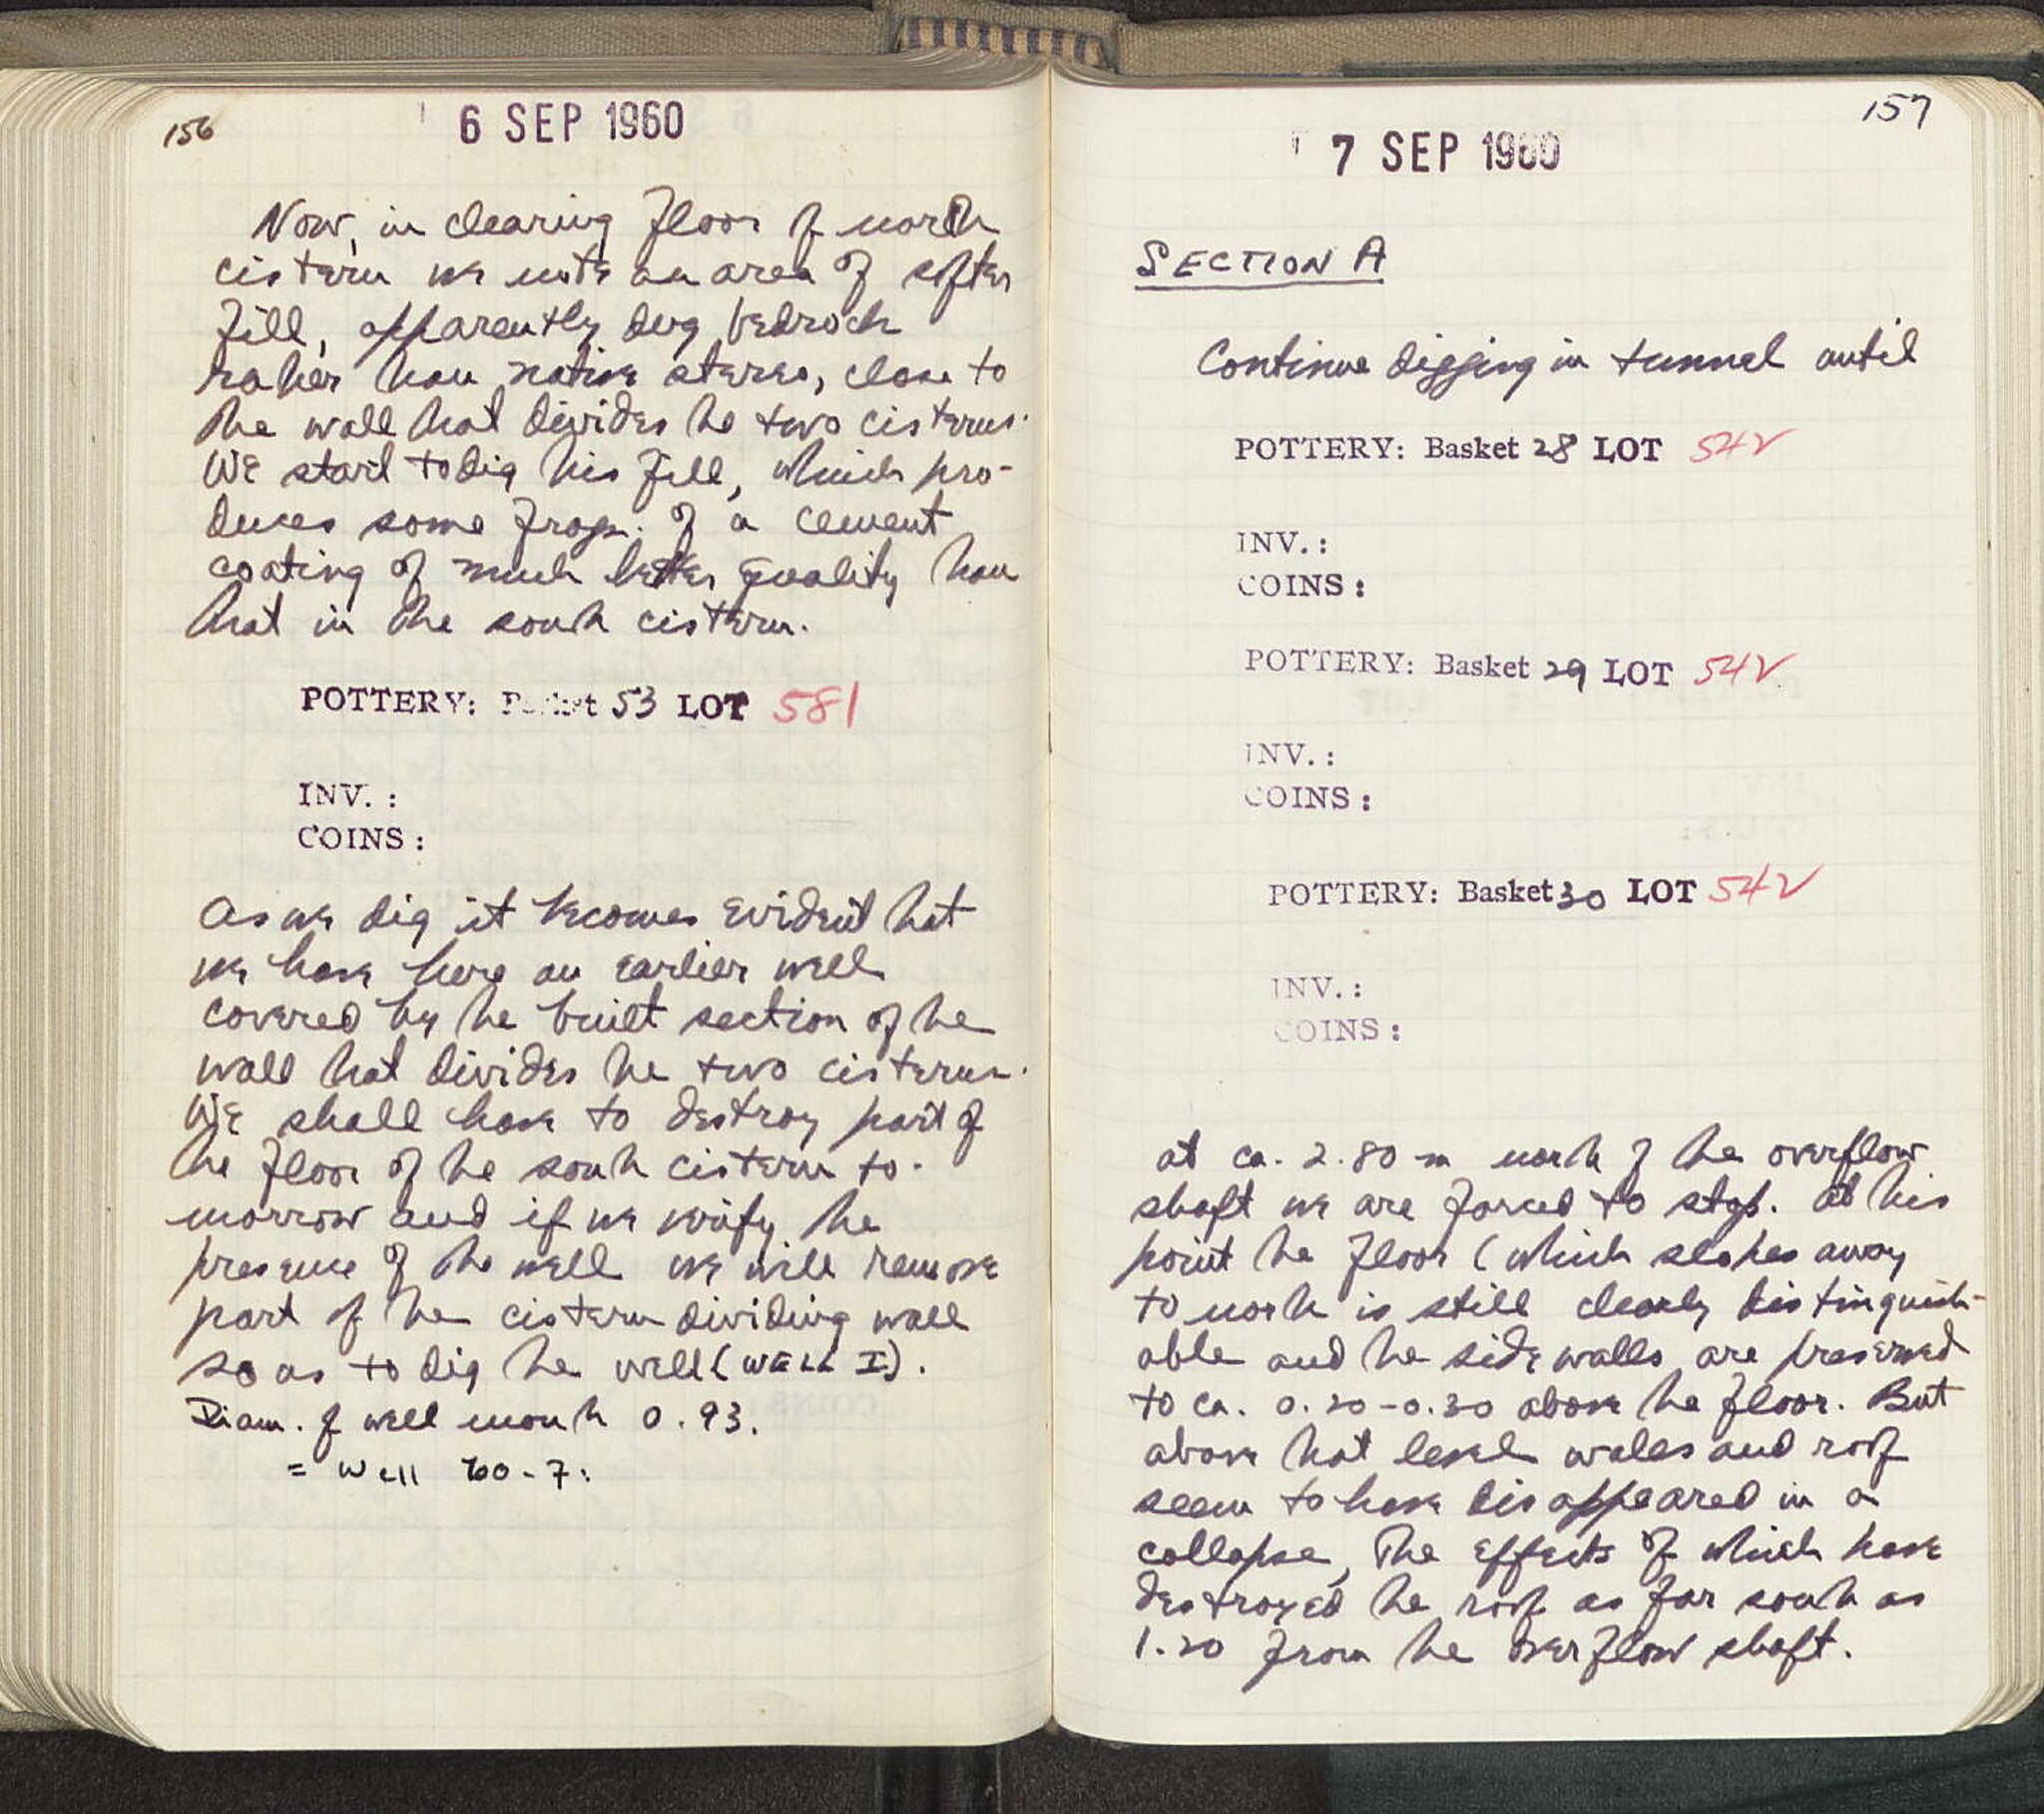 156
6 SEP 1960
Now, in clearing floor of north
cistern we note an area of softer
fill, apparently dug bedrock
rather than native stereo, close to
the wall that divides the two cisterns.
We start to dig this fill, which pro-
duces some frags. of a cement
coating of much better quality than
that in the south cistern.
POTTERY: Basket 53 LOT 581
INV. :
COINS :
As we dig it becomes evident that
we have here an earlier well
covered by the built section of the
wall that divides the two cisterns.
We shall have to destroy part of
the floor of the south cistern to-
morrow and if we verify the
presence of the well we will remove
part of the cistern dividing wall
so as to dig the well (WELL I).
Diam. of well mouth 0.93.
= Well 60-7.
157
7 SEP 1960
SECTION A
Continue digging in tunnel until
POTTERY: Basket 28 LOT 542
INV. :
COINS :
POTTERY: Basket 29 LOT 542
INV. :
COINS :
POTTERY: Basket 30 LOT 542
INV. :
COINS :
at ca. 2.80 m north of the overflow
shaft we are forced to stop. At this
point the floor (which slopes away
to north is still clearly distinguish-
able and the side walls are preserved
to ca. 0.20-0.30 above the floor. But
above that level walls and roof
seem to have disappeared in a
collapse, the effects of which have
destroyed the roof as far south as
1.20 from the overflow shaft.